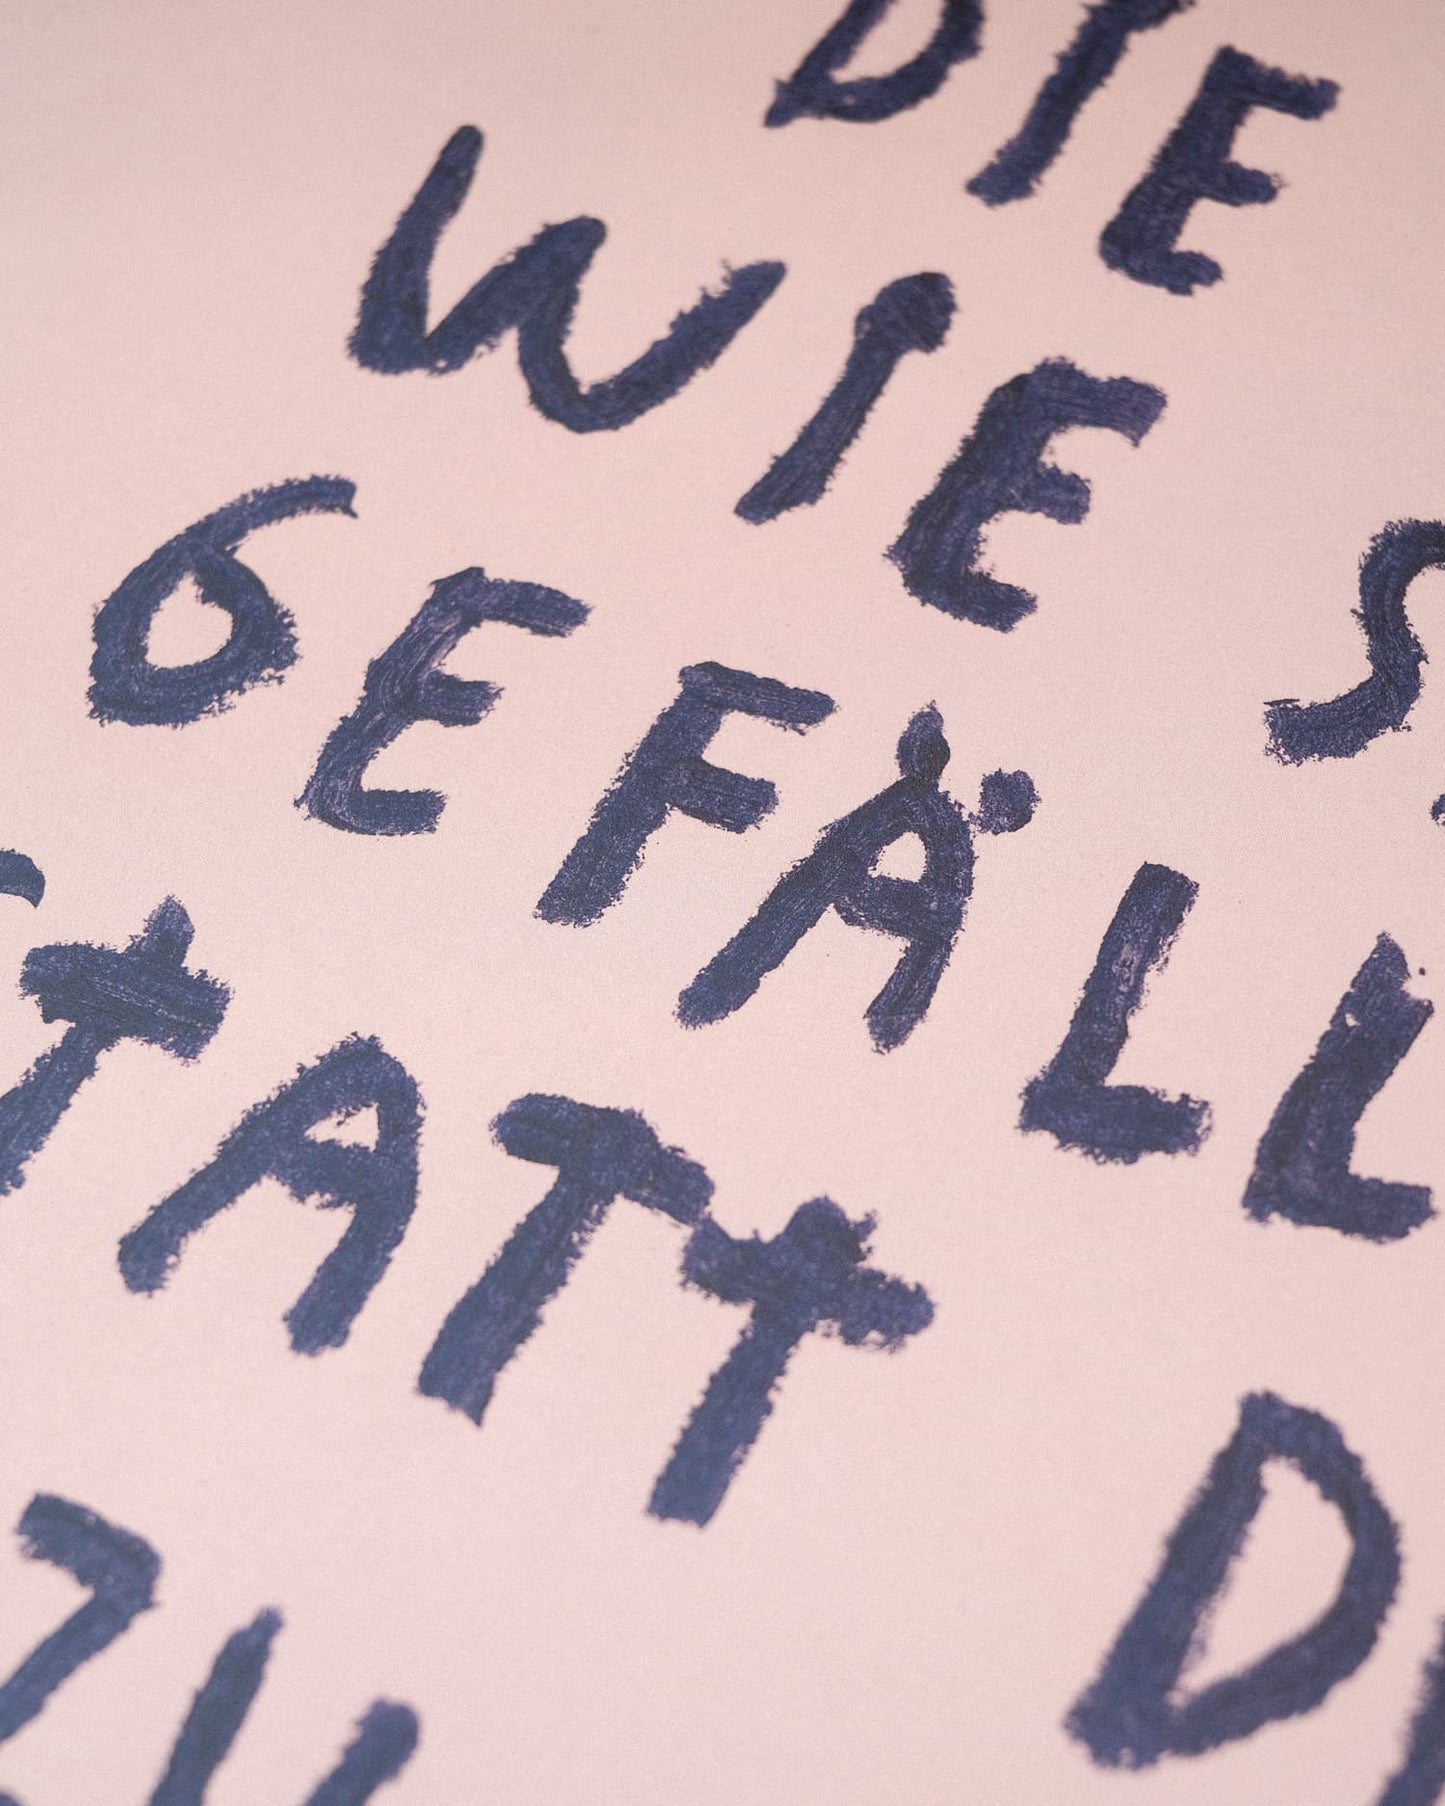 DIE
WIE
GEFÄLL
STATT
ZU D